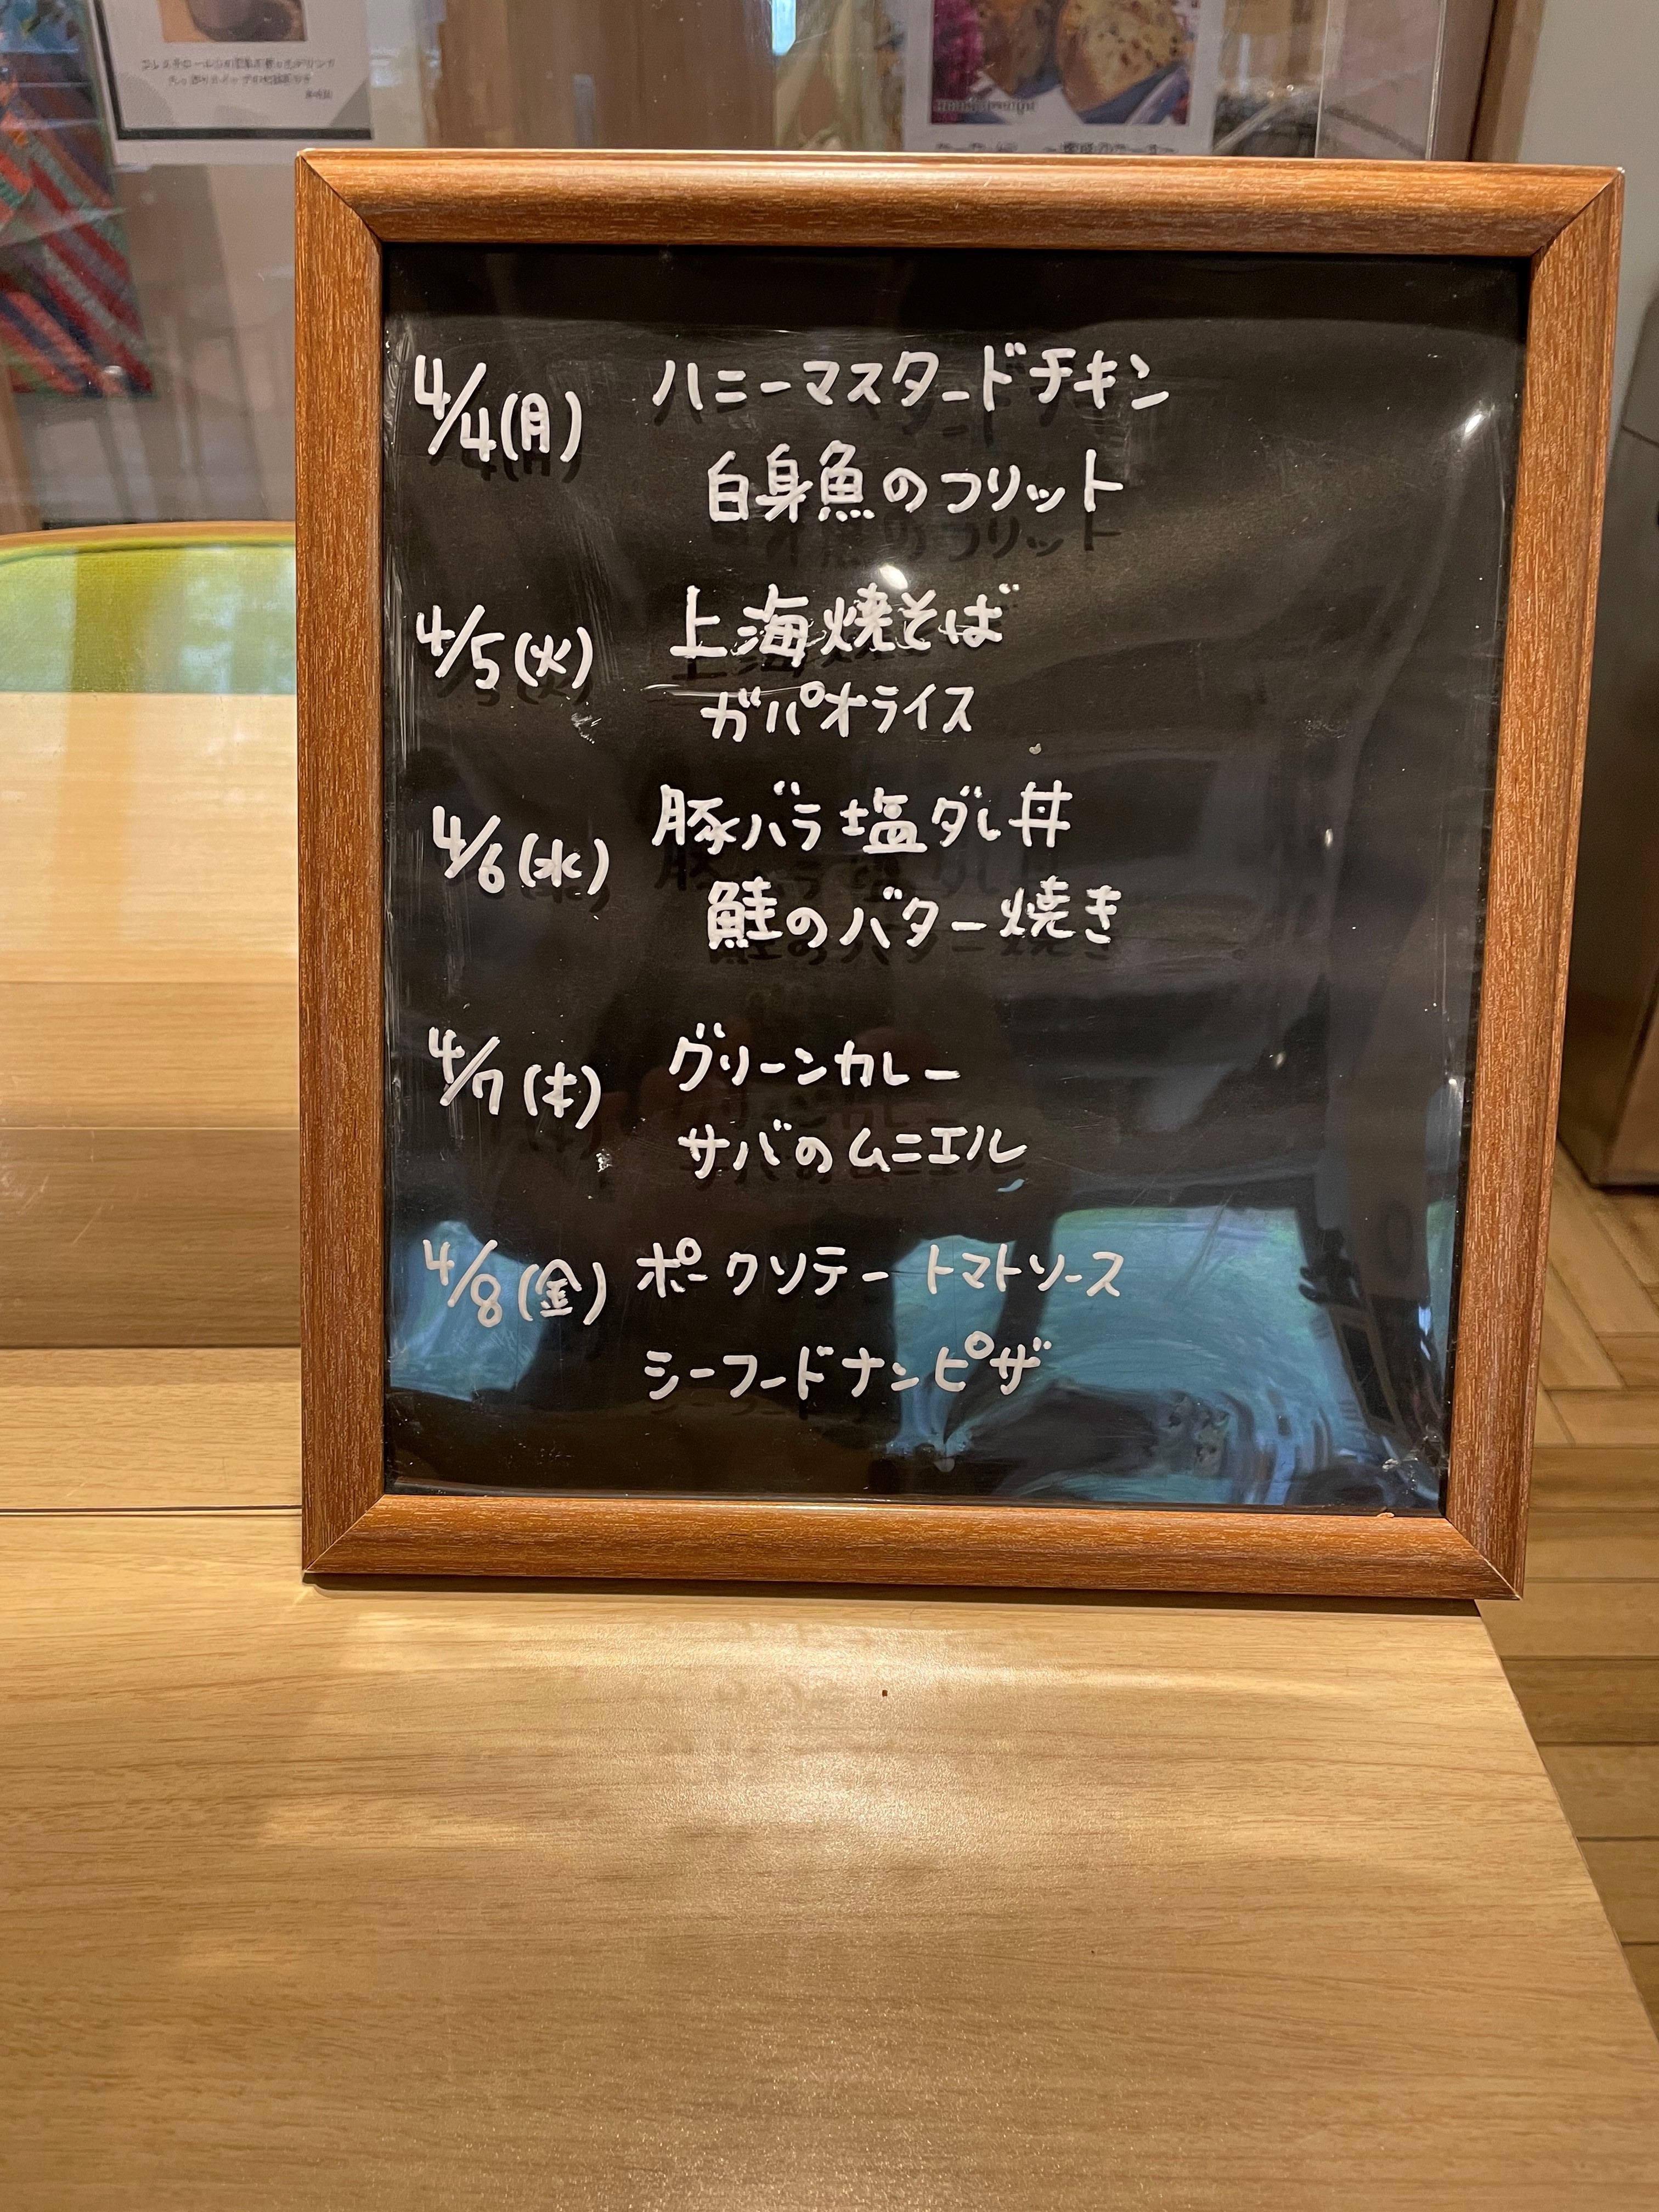 4/4(月) ハニーマスタードチキン
白身魚のフリット
4/5(火) 上海焼そば
ガパオライス
4/6(水) 豚バラ塩ダレ丼
鮭のバター焼き
4/7(木) グリーンカレー
サバのムニエル
4/8(金) ポークソテー トマトソース
シーフードナンピザ